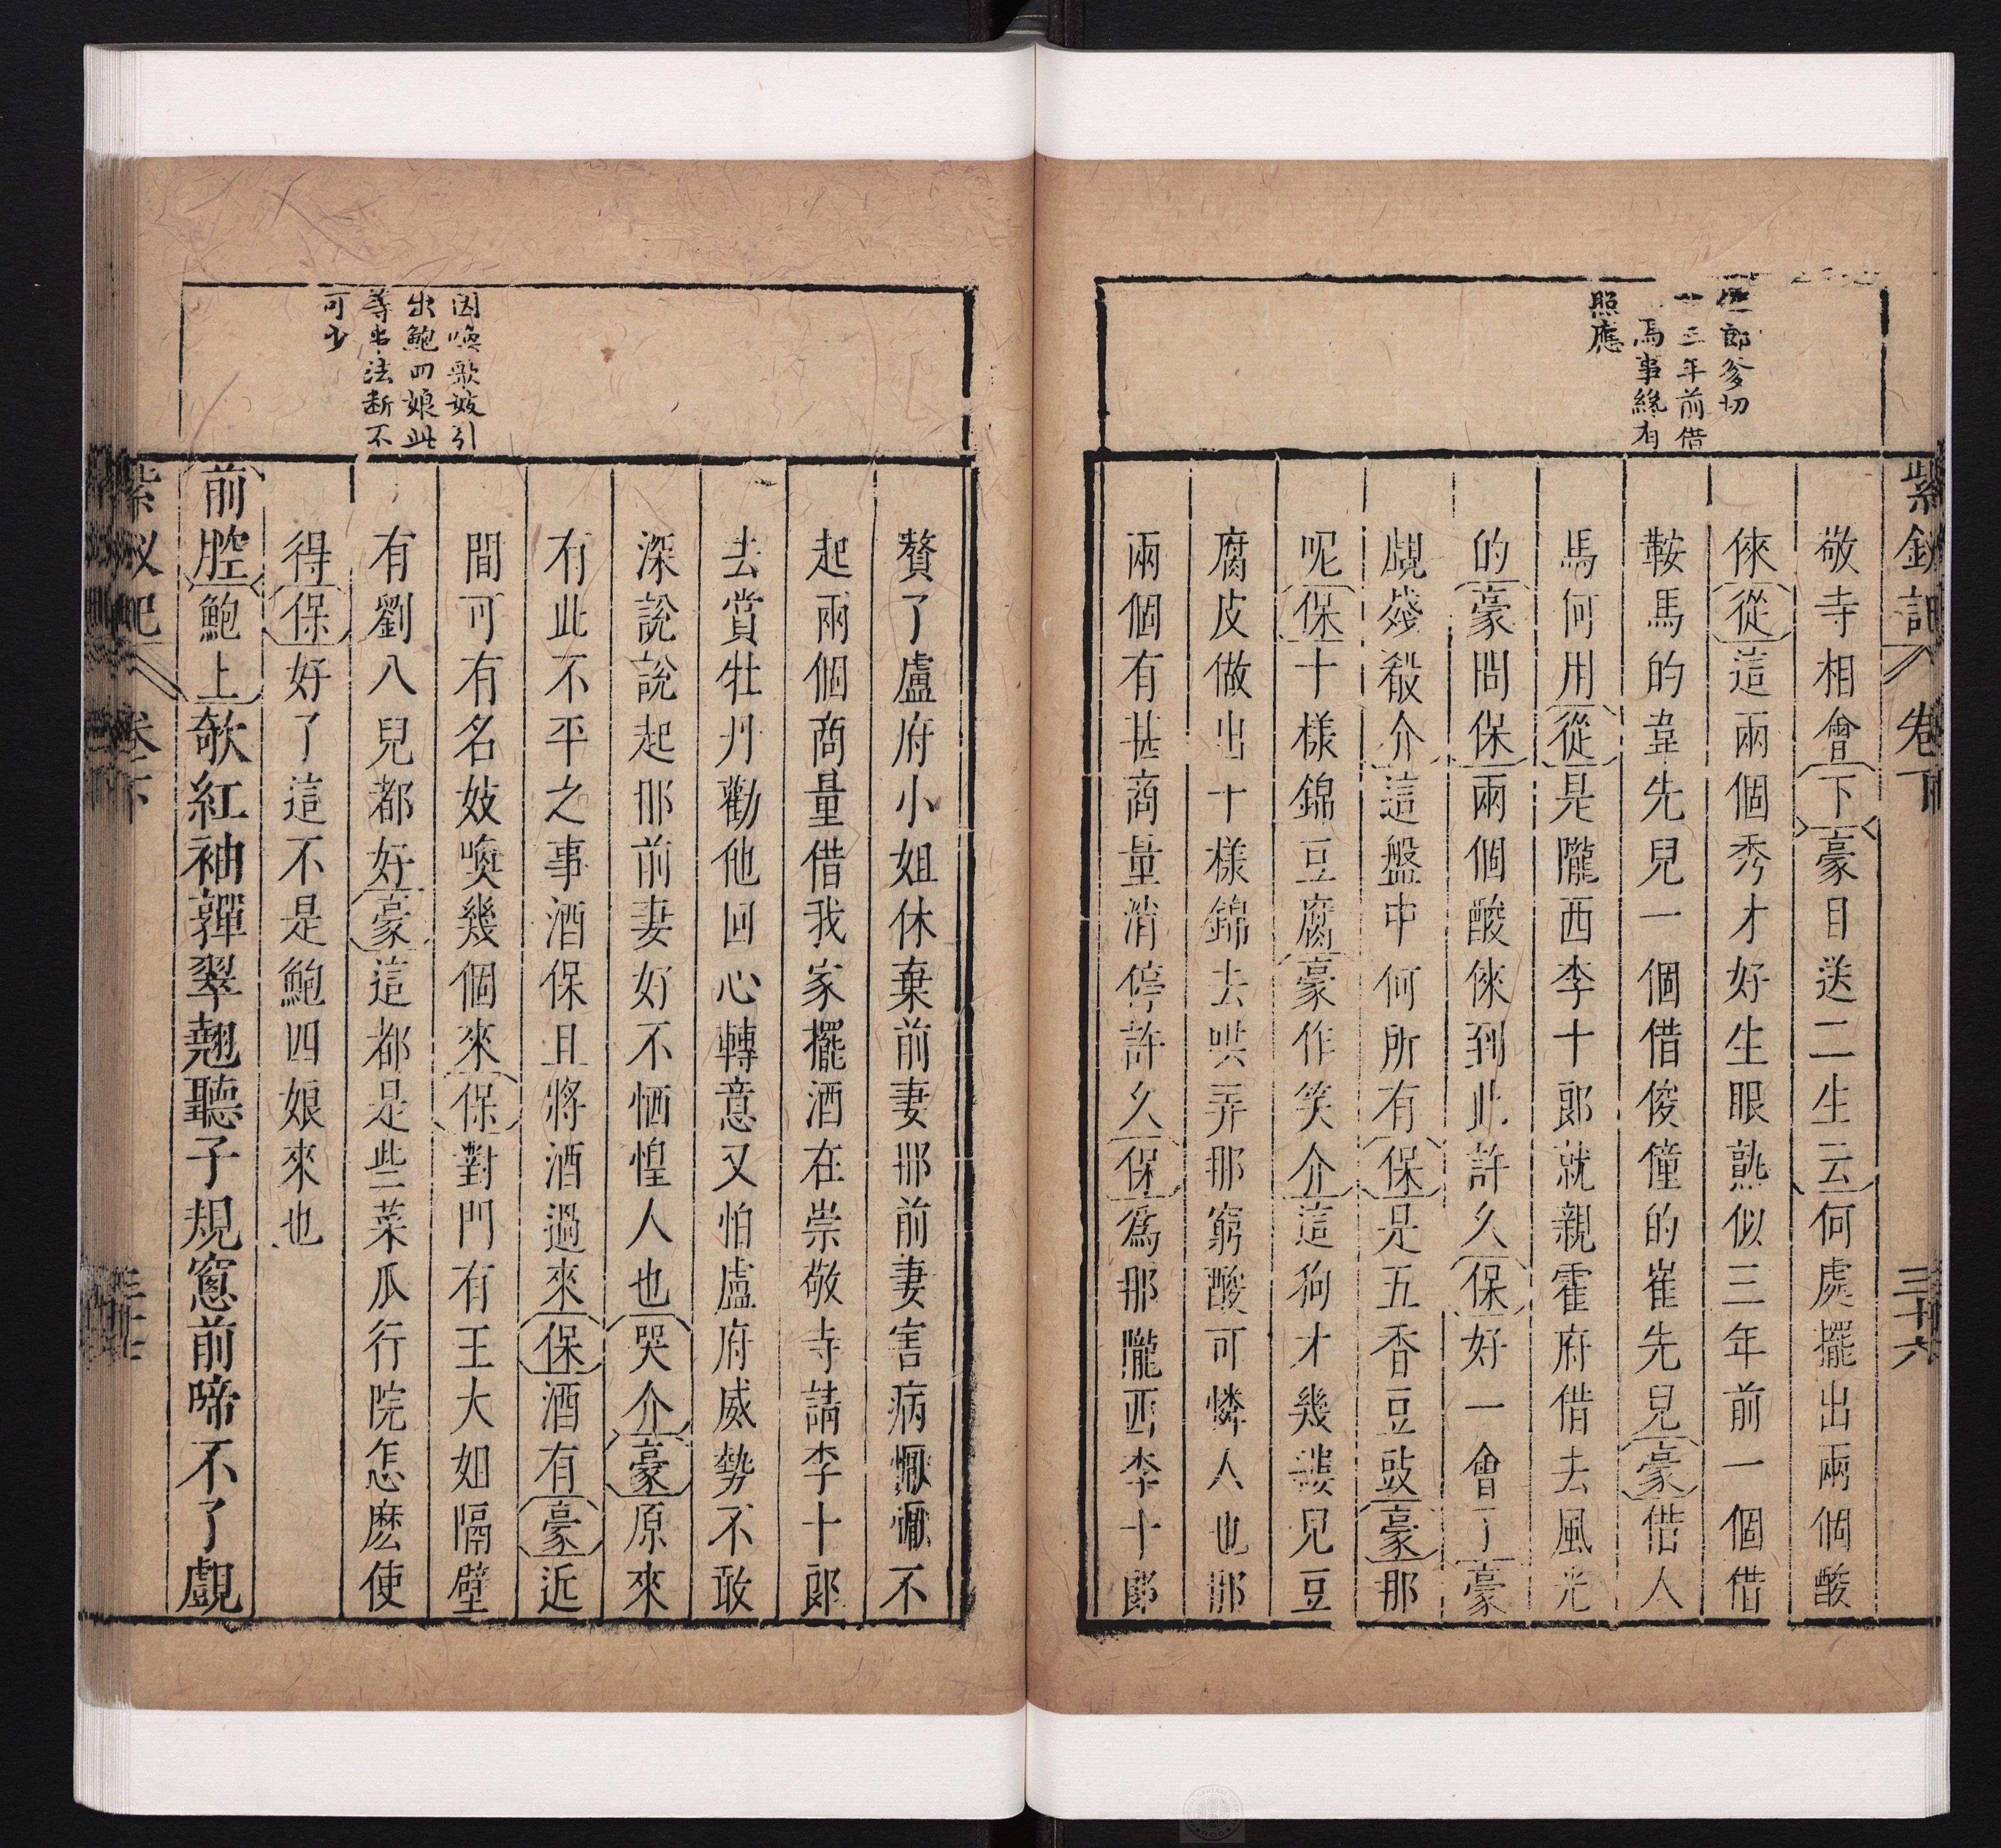 紫釵記 卷下 三十六
郎爹切
三年前借
馬事緣有
照應
敬寺相會下豪目送二生云何處擺出兩個酸
倈從這兩個秀才好生眼熟似三年前一個借
鞍馬的韋先兒一個借俊僮的崔先兒豪借人
馬何用從是隴西李十郎就親霍府借去風光
的豪問保兩個酸倈到此許久保好一會了豪
覷殘殽介這盤中何所有保是五香豆豉豪那
呢保十樣錦豆腐豪作笑介這狗才幾褸兒豆
腐皮做出十樣錦去哄弄那窮酸可憐人也那
兩個有甚商量消停許久保爲那隴西李十郎
因喚歌妓引
出鮑四娘此
等串法斷不
可少
贅了盧府小姐休棄前妻那前妻害病懨懨不
起兩個商量借我家擺酒在崇敬寺請李十郎
去賞牡丹勸他回心轉意又怕盧府威勢不敢
深說說起那前妻好不恓惶人也哭介豪原來
有此不平之事酒保且將酒過來保酒有豪近
間可有名妓喚幾個來保對門有王大姐隔壁
有劉八兒都好豪這都是些菜瓜行院怎麽使
得保好了這不是鮑四娘來也
前腔鮑上欹紅袖嚲翠翹聽子規窻前啼不了覷
紫釵記 卷下